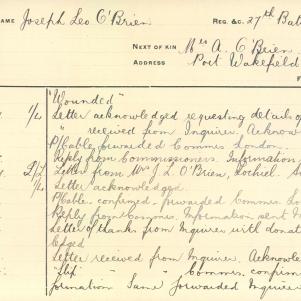 NAME Joseph Leo O'Brien REG. &C. 27th Bat
NEXT OF KIN Mrs A. O'Brien
ADDRESS Port Wakefield
"Wounded"
Letter acknowledged requesting details of
" received from Inquirer. Acknow
P/Cable forwarded Commrs London.
Reply from Commissioners. Information
Letter from Mrs J. L. O'Brien, Lochiel. S
Letter acknowledged.
P/Cable. confirmed. forwarded Commrs Lo
Reply from Commrs. Information sent In
Letter of thanks from Inquirer with donat
edged
Letter received from Inquirer. Acknowle
" " Commrs. confirm
formation Same forwarded Inquirer